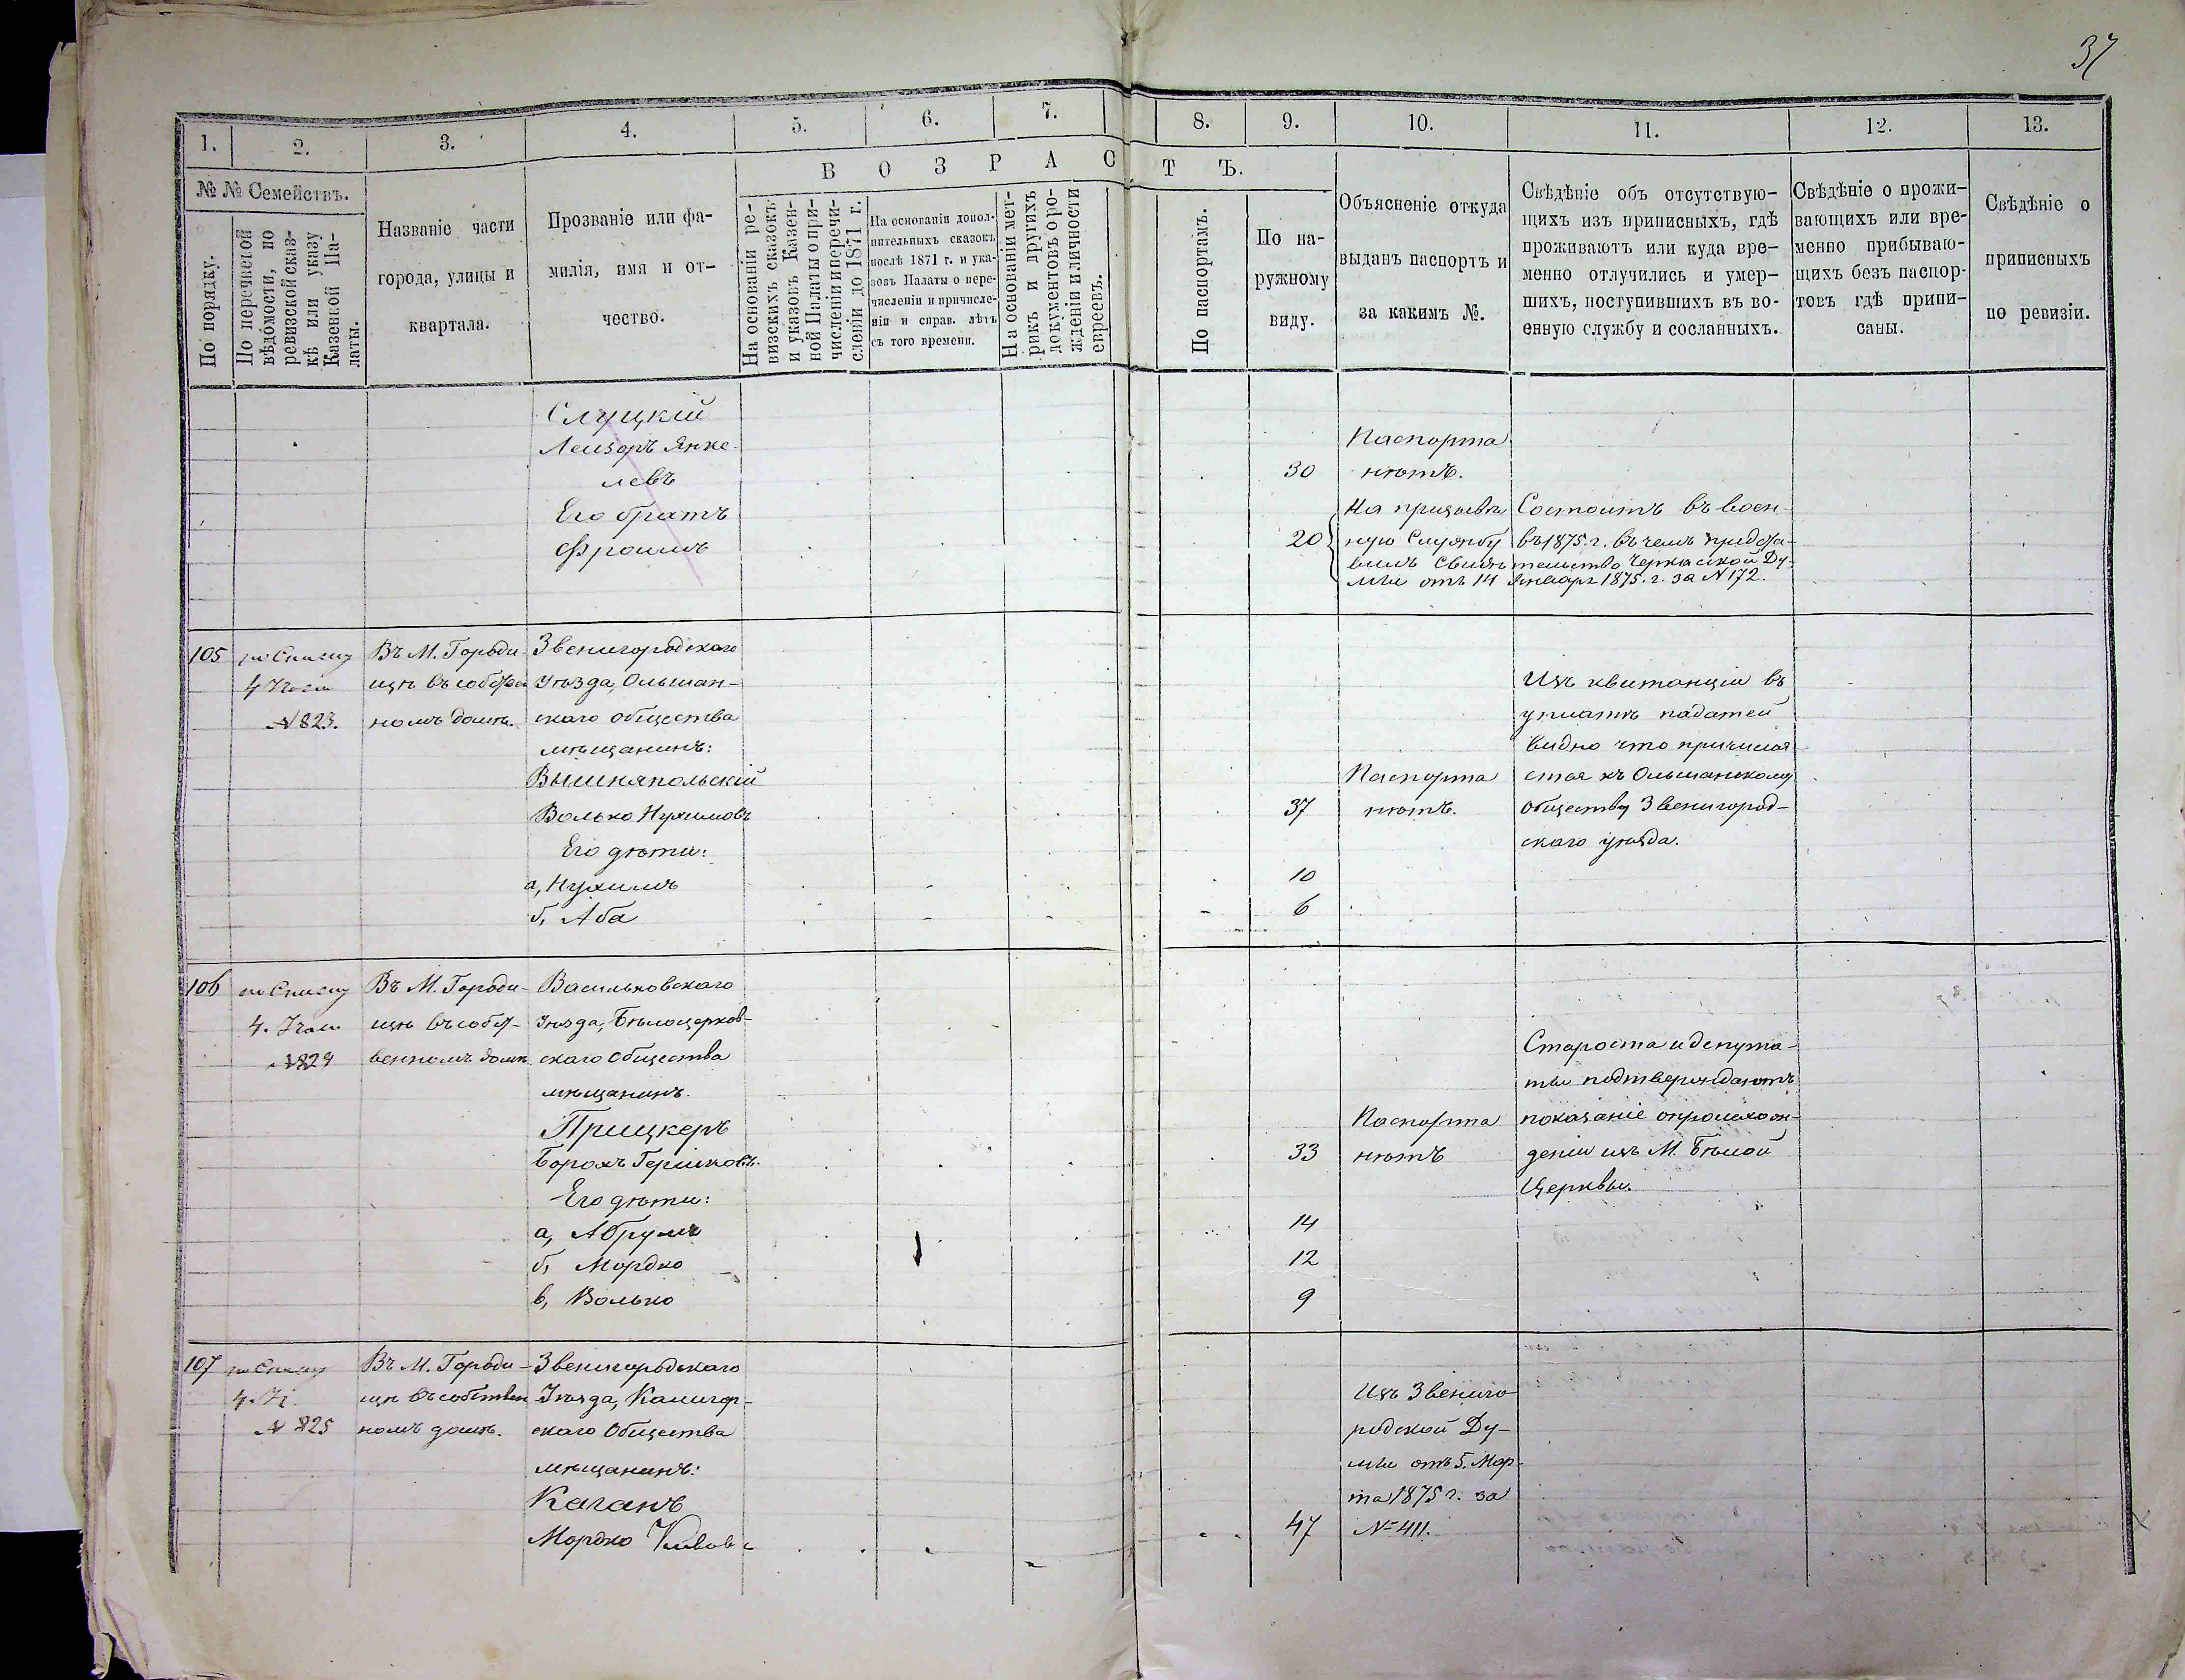 37
1.
2.
3.
4.
5.
6.
7.
8.
9.
10.
11.
12.
13.
В О З Р А С Т Ъ.
№ № Семействъ.
По порядку.
По перечневой
вѣдомости, по
ревизской сказ-
кѣ или указу
Казенной Па-
латы.
Названіе части
города, улицы и
квартала.
Прозваніе или фа-
милія, имя и от-
чество.
На основаніи ре-
визскихъ сказокъ
и указовъ Казен-
ной Палаты о при-
численіи и перечи-
сленіи до 1871 г.
На основаніи допол-
нительныхъ сказокъ
послѣ 1871 г. и ука-
зовъ Палаты о пере-
численіи и причисле-
ніи и справ. лѣтъ
съ того времени.
На основаніи мет-
рикъ и другихъ
документовъ о ро-
жденіи и личности
евреевъ.
По паспортамъ.
По на-
ружному
виду.
Объясненіе откуда
выданъ паспортъ и
за какимъ №.
Свѣдѣніе объ отсутствую-
щихъ изъ приписныхъ, гдѣ
проживаютъ или куда вре-
менно отлучились и умер-
шихъ, поступившихъ въ во-
енную службу и сосланныхъ.
Свѣдѣніе о прожи-
вающихъ или вре-
менно прибываю-
щихъ безъ паспор-
товъ гдѣ припи-
саны.
Свѣдѣніе о
приписныхъ
по ревизіи.
Слуцкій
Лейзоръ Янке-
левъ
Его братъ
Фроимъ
30
Паспорта
нѣтъ.
20
Состоитъ въ воен-
ную Службу въ 1875. г. въ чемъ
Свидѣтельство Черкаской Ду-
мы отъ 14 Января 1875. г. за № 172.
105
по Списку
4 Части
№ 823.
Въ М. Городи-
щѣ въ
номъ домѣ.
Звенигородскаго
Уѣзда, Ольшан-
скаго общества
мѣщанинъ:
Вишняпольскій
Волько Нухимовъ
Его дѣти:
а, Нухимъ
б, Аба
37
10
6
Паспорта
нѣтъ.
Изъ квитанціи въ
уплатѣ податей
видно что причисля-
ется къ Ольшанскому
обществу Звенигород-
скаго уѣзда.
106
по Списку
4. Части
№ 824
Въ М. Городи-
щѣ въ собст-
венномъ домѣ
Васильковскаго
Уѣзда, Бѣлоцерков-
скаго Общества
мѣщанинъ.
Прицкеръ
Борохъ Гершковъ.
Его дѣти:
а, Абрумъ
б, Мордко
в, Волько
33
14
12
9
Паспорта
нѣтъ
Староста и депута-
ты подтверждаютъ
показаніе о происхож-
деніи изъ М. Бѣлой
Церквы.
107
по Списку
4. Ч.
№ 825
Въ М. Городи-
щѣ въ собствен
номъ домѣ.
Звенигородскаго
Уѣзда, Калигор-
скаго Общества
мѣщанинъ:
Каганъ
Мордко
47
Изъ Звениго-
родской Ду-
мы отъ 5. Мар-
та 1875 г. за
№ 411.